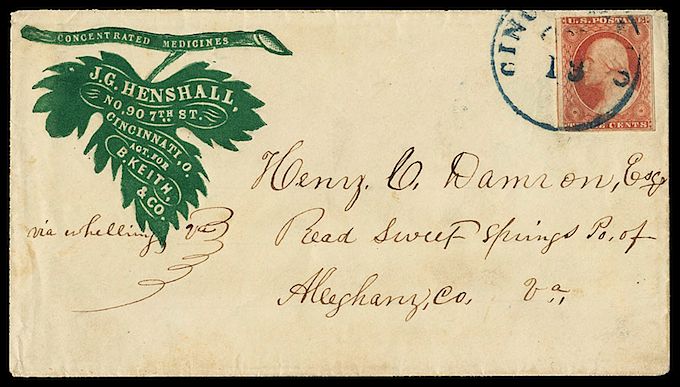 CONCENTRATED MEDICINES
J.G. HENSHALL,
NO. 90 7TH ST.
CINCINNATI, O.
AGT. FOR
B. KEITH,
& CO.
CINC
19
U.S. POSTAGE
CENTS
Henry. C. Damron, Esq
via whelling Va
Read Sweet Springs Po, of
Alleghany, Co, Va,